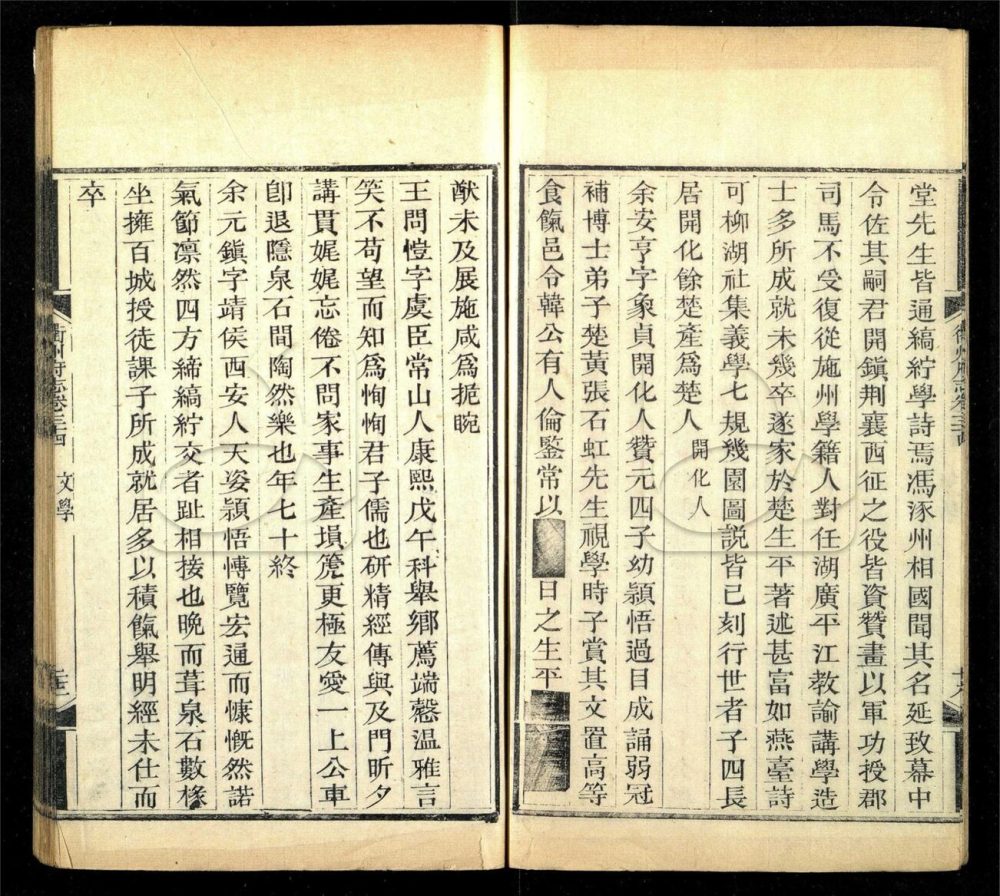 堂先生皆通縞紵學詩焉馮涿州相國聞其名延致幕中
令佐其嗣君開鎮荆襄西征之役皆資贊畫以軍功授郡
司馬不受復從施州學籍人對任湖廣平江教諭講學造
士多所成就未幾卒遂家於楚生平著述甚富如燕臺詩
可柳湖社集義學七規幾園圖説皆已刻行世者子四長
居開化餘楚產爲楚人 開化人
余安亨字象貞開化人贊元四子幼頴悟過目成誦弱冠
補博士弟子楚黄張石虹先生視學時子賞其文置高等
食餼邑令韓公有人倫鑒常以 日之生平
猷未及展施咸爲扼睕
王問愷字虞臣常山人康熙戊午科舉鄉薦端慤温雅言
笑不苟望而知爲恂恂君子儒也研精經傳與及門昕夕
講貫娓娓忘倦不問家事生產塤箎更極友愛一上公車
卽退隱泉石間陶然樂也年七十終
余元鎭字靖侯西安人天姿頴悟博覽宏通而慷慨然諾
氣節凛然四方締縞紵交者趾相接也晩而葺泉石數椽
坐擁百城授徒課子所成就居多以積餼舉明經未仕而
卒
衢州府志卷三四 文學